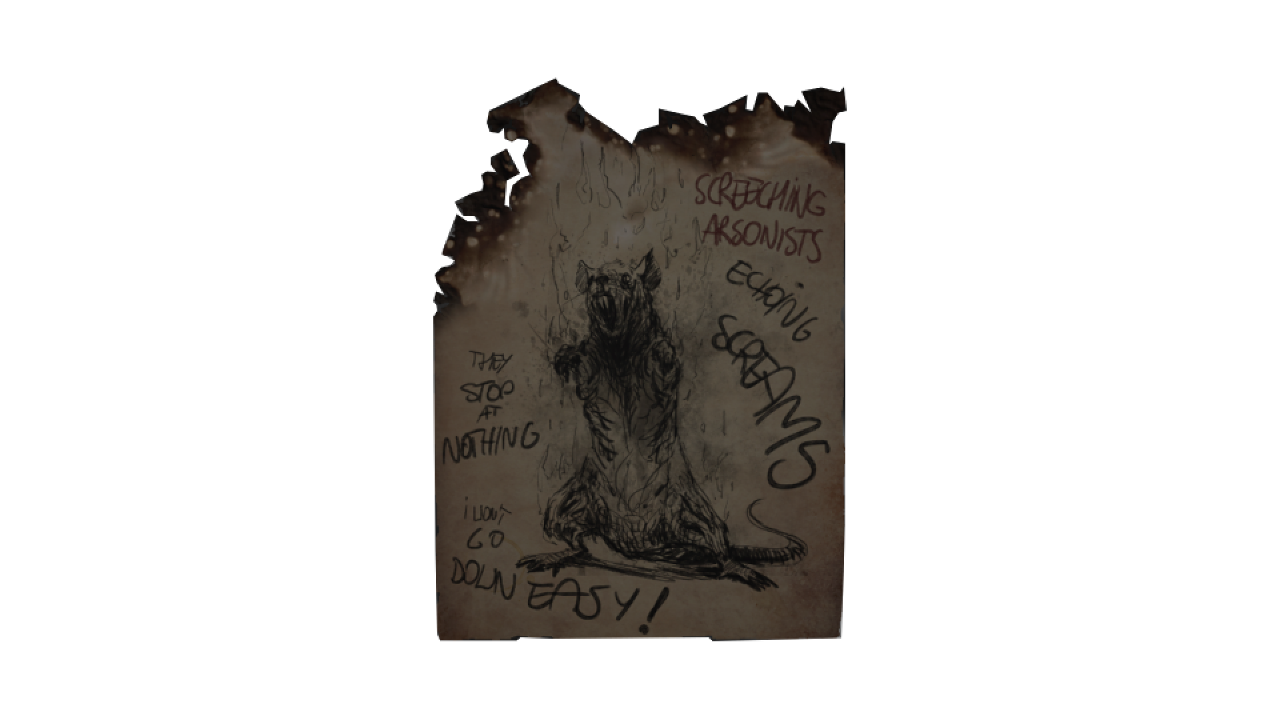 SCREECHING
ARSONISTS
ECHOING
SCREAMS
THEY
STOP
AT
NOTHING
i WON'T
GO
DOWN EASY!